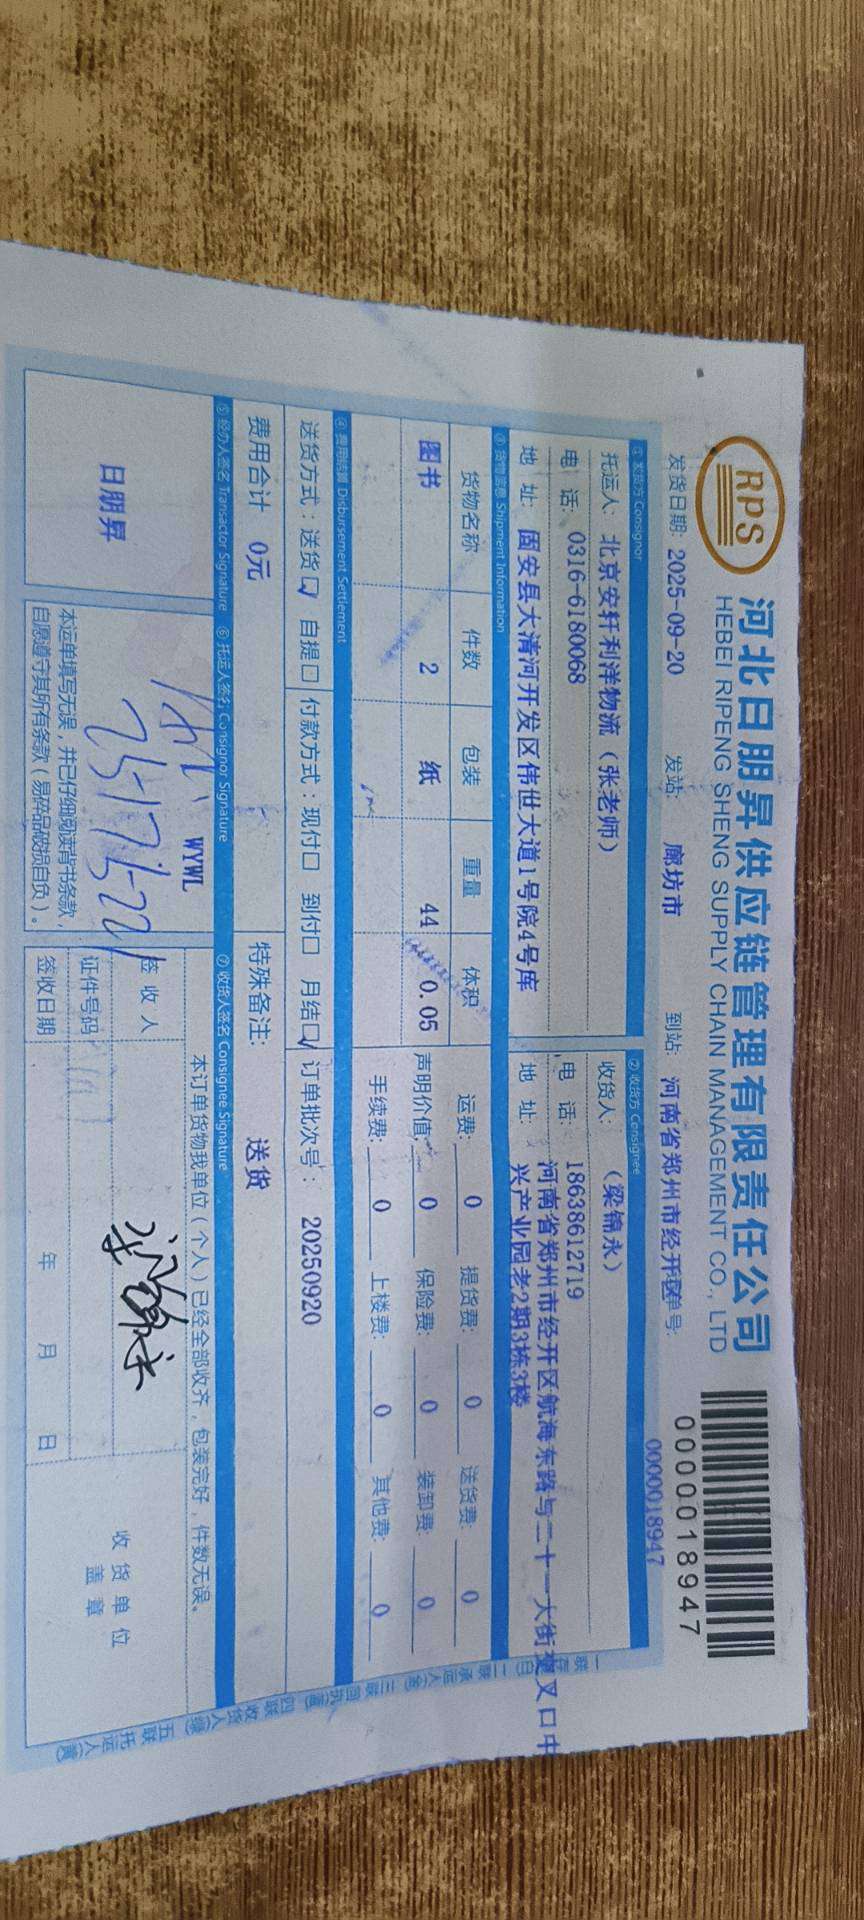 RPS
河北日朋昇供应链管理有限责任公司
HEBEI RIPENG SHENG SUPPLY CHAIN MANAGEMENT CO., LTD
0000018947
发货日期: 2025-09-20 发站: 廊坊市 到站: 河南省郑州市经开区 单号: 0000018947
① 发货方 Consignor ② 收货方 Consignee
托运人: 北京安轩利洋物流（张老师） 收货人: （梁锦永）
电 话: 0316-6180068 电 话: 18638612719
地 址: 固安县大清河开发区伟世大道1号院4号库 地 址: 河南省郑州市经开区航海东路与二十一大街交叉口中
兴产业园老2期3栋3楼
③ 货物信息 Shipment Information
货物名称 件数 包装 重量 体积 运费: 0 提货费: 0 送货费: 0
图书 2 纸 44 0.05 声明价值: 0 保险费: 0 装卸费: 0
手续费: 0 上楼费: 0 其他费: 0
④ 费用结算 Disbursement Settlement
送货方式：送货☑ 自提□ 付款方式：现付□ 到付□ 月结☑ 订单批次号： 20250920
费用合计 0元 特殊备注: 送货
⑤ 经办人签名 Transactor Signature ⑥ 托运人签名 Consignor Signature ⑦ 收货人签名 Consignee Signature
日朋昇
WYWL
本运单填写无误，并已仔细阅读背书条款，
自愿遵守其所有条款（易碎品破损自负）。
本订单货物我单位（个人）已经全部收齐，包装完好，件数无误。
签 收 人
证件号码
签收日期 年 月 日
收 货 单 位
盖 章